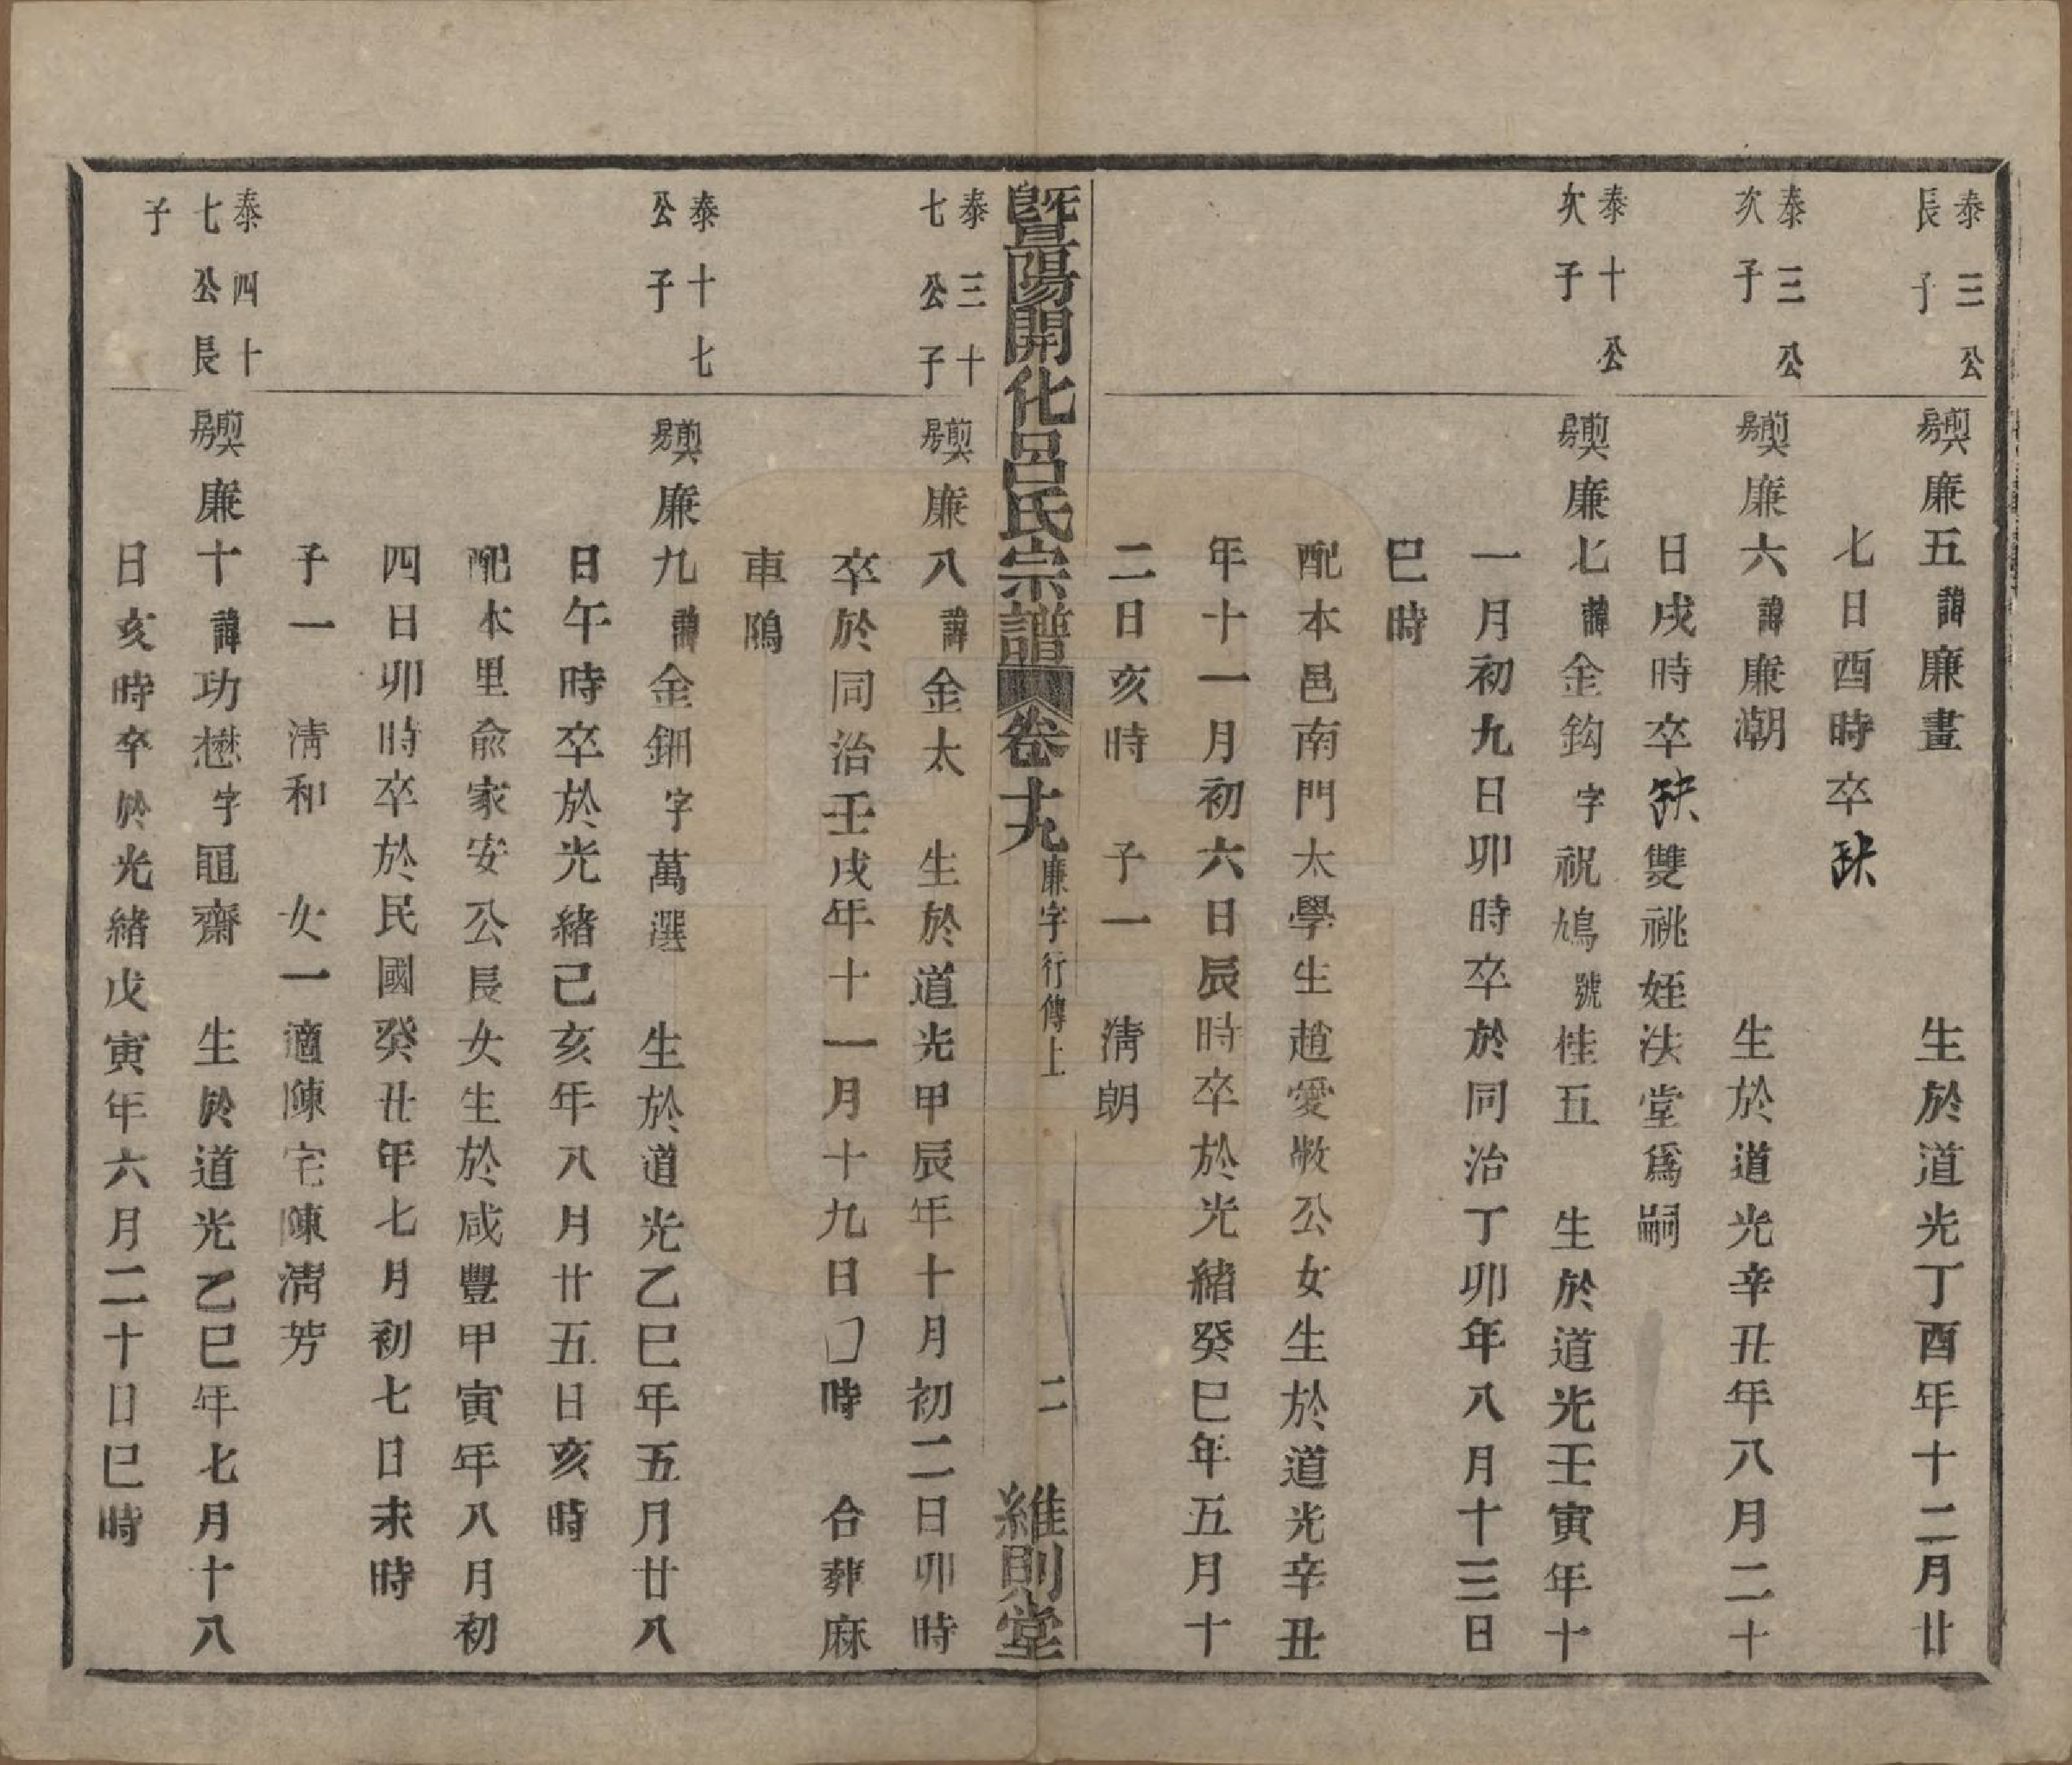 泰三公
長子
廉五諱廉畫 生於道光丁酉年十二月廿
七日酉時卒缺
泰三公
次子
廉六諱廉潮 生於道光辛丑年八月二十
日戌時卒缺雙祧姪法堂爲嗣
泰十公
次子
廉七諱金鈎字祝鳩號桂五 生於道光壬寅年十
一月初九日卯時卒於同治丁卯年八月十三日
巳時
配本邑南門太學生趙愛敝公女生於道光辛丑
年十一月初六日辰時卒於光緒癸巳年五月十
二日亥時 子一 淸朗
暨陽開化呂氏宗譜 卷十九 廉字行傳上 二 維則堂
泰三十
七公子
廉八諱金太 生於道光甲辰年十月初二日卯時
卒於同治壬戌年十一月十九日 時 合葬麻
車隖
泰十七
公子
廉九諱金鈿字萬選 生於道光乙巳年五月廿八
日午時卒於光緒己亥年八月廿五日亥時
配木里兪家安公長女生於咸豐甲寅年八月初
四日卯時卒於民國癸丑年七月初七日未時
子一 淸和 女一適陳宅陳淸芳
泰四十
七公長
子
廉十諱功懋字 齋 生於道光乙巳年七月十八
日亥時卒於光緒戊寅年六月二十日巳時